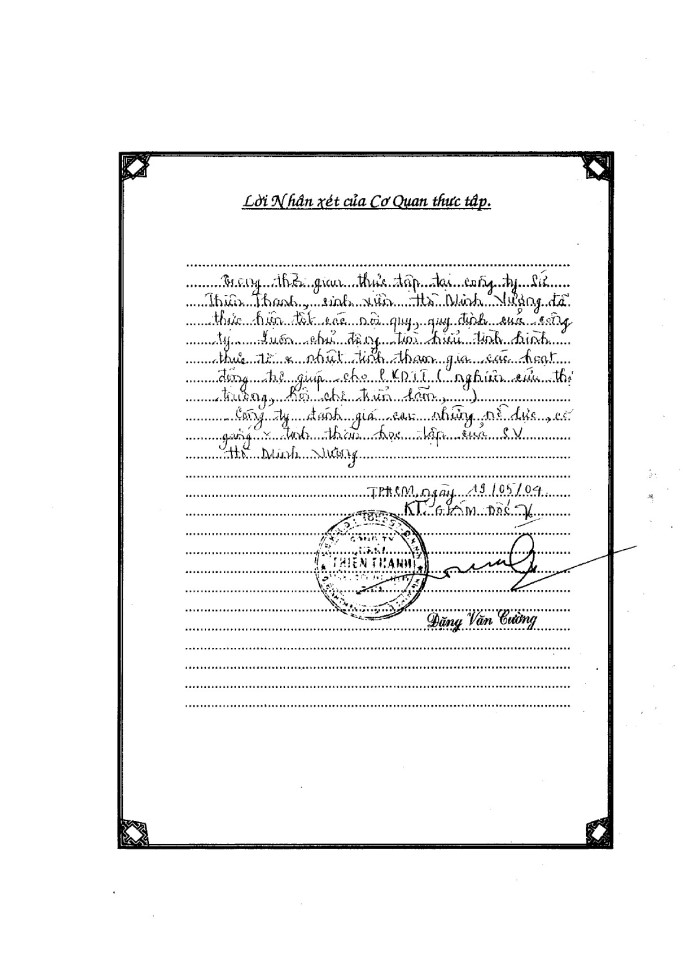 Lời Nhận xét của Cơ Quan thực tập.
Trong thời gian thực tập tại công ty Sứ
Thiên Thanh, sinh viên Hồ Minh Vương đã
thực hiện tốt các nội quy, quy định của công
ty. Luôn chủ động tìm hiểu tình hình
thực tế & nhiệt tình tham gia các hoạt
động trợ giúp cho P.KDTT ( nghiên cứu thị
trường, hội chợ triển lãm, )
Công ty đánh giá cao những nỗ lực, cố
gắng & tinh thần học tập của SV
Hồ Minh Vương
TPHCM, ngày 19/05/04
KT. GIÁM ĐỐC
CÔNG TY
THIÊN THANH
Đặng Văn Cường